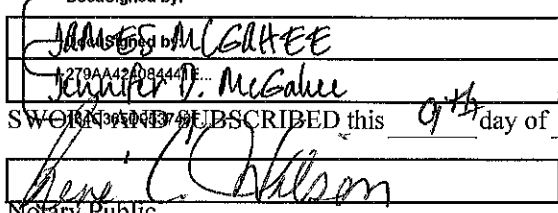 DocuSigned by:
JAMES MCGAHEE
DocuSigned by:
279AA424084441E...
Jennifer D. McGahee
SWORN AND SUBSCRIBED this 9th day of
Rene C. Wilson
Notary Public